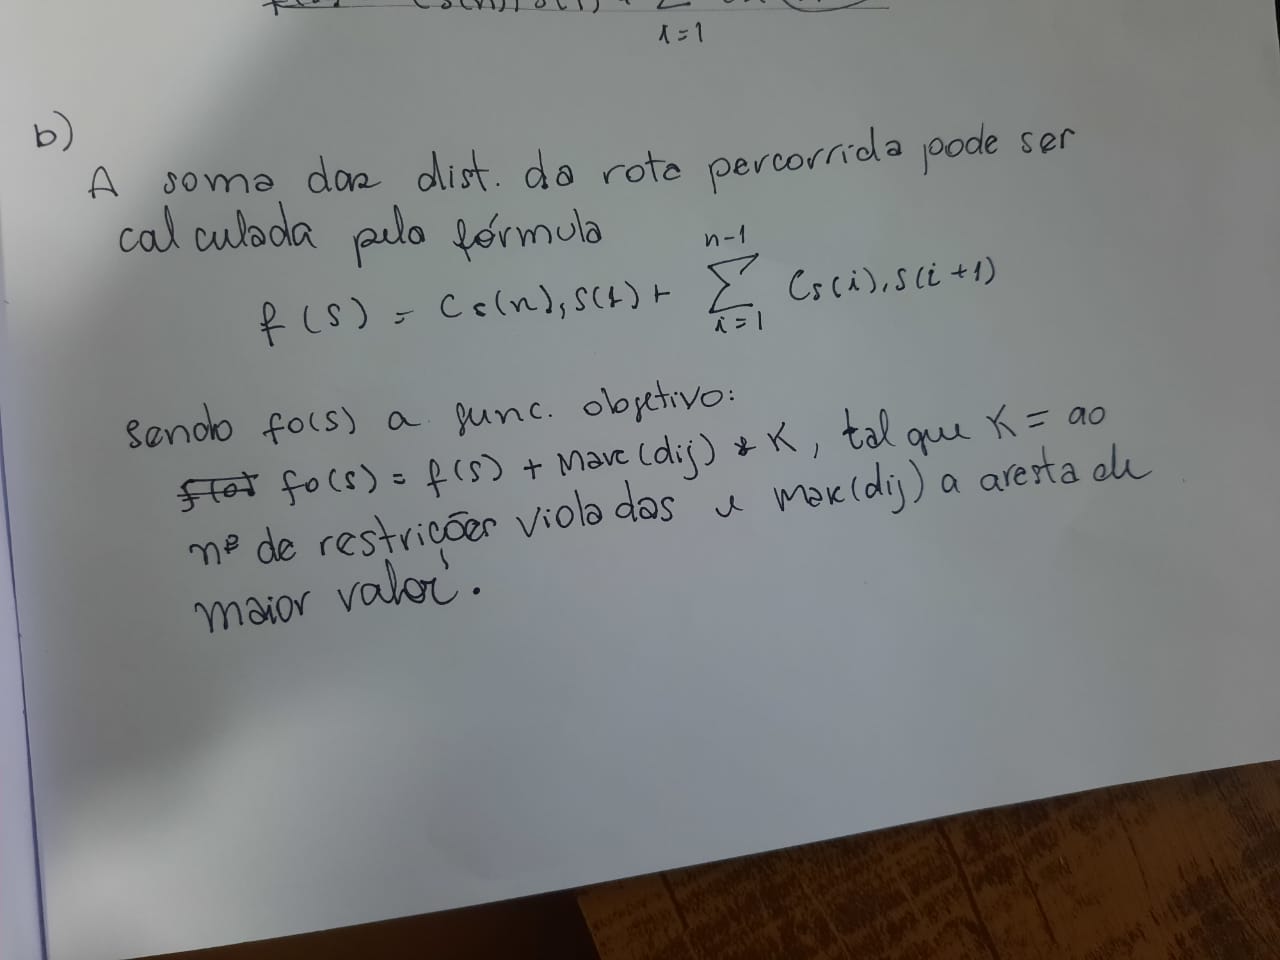 i=1
b)
A soma das dist. da rota percorrida pode ser
calculada pela fórmula
n-1
f(s) = Cs(n),s(1) + Σ Cs(i),s(i+1)
i=1
Sendo fo(s) a func. objetivo:
fo(s) = f(s) + Max(dij) * K, tal que K = ao
nº de restrições violadas e max(dij) a aresta de
maior valor.